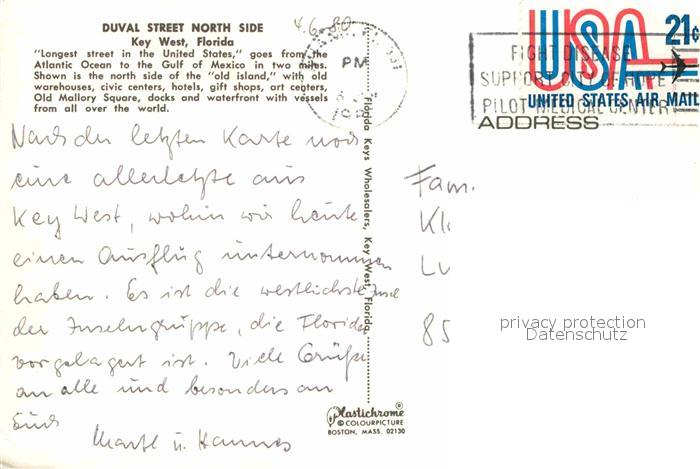 DUVAL STREET NORTH SIDE
Key West, Florida
"Longest street in the United States," goes from the
Atlantic Ocean to the Gulf of Mexico in two miles.
Shown is the north side of the "old island," with old
warehouses, civic centers, hotels, gift shops, art centers,
Old Mallory Square, docks and waterfront with vessels
from all over the world.
4.6.80
PM
USA 21c
UNITED STATES AIR MAIL
FIGHT DISEASE
SUPPORT CITY OF HOPE
PILOT MEDICAL CENTER
ADDRESS
Nach der letzten Karte noch
eine allerletzte aus
Key West, wohin wir heute
einen Ausflug unternommen
haben. Es ist die westlichste Insel
der Inselgruppe, die Florida
vorgelagert ist. Viele Grüße
an alle und besonders an
Euch
Hannes
Florida Keys Wholesalers, Key West, Florida.
Fam.
Kl
Lu
85
privacy protection
Datenschutz
Plastichrome®
© COLOURPICTURE
BOSTON, MASS. 02130